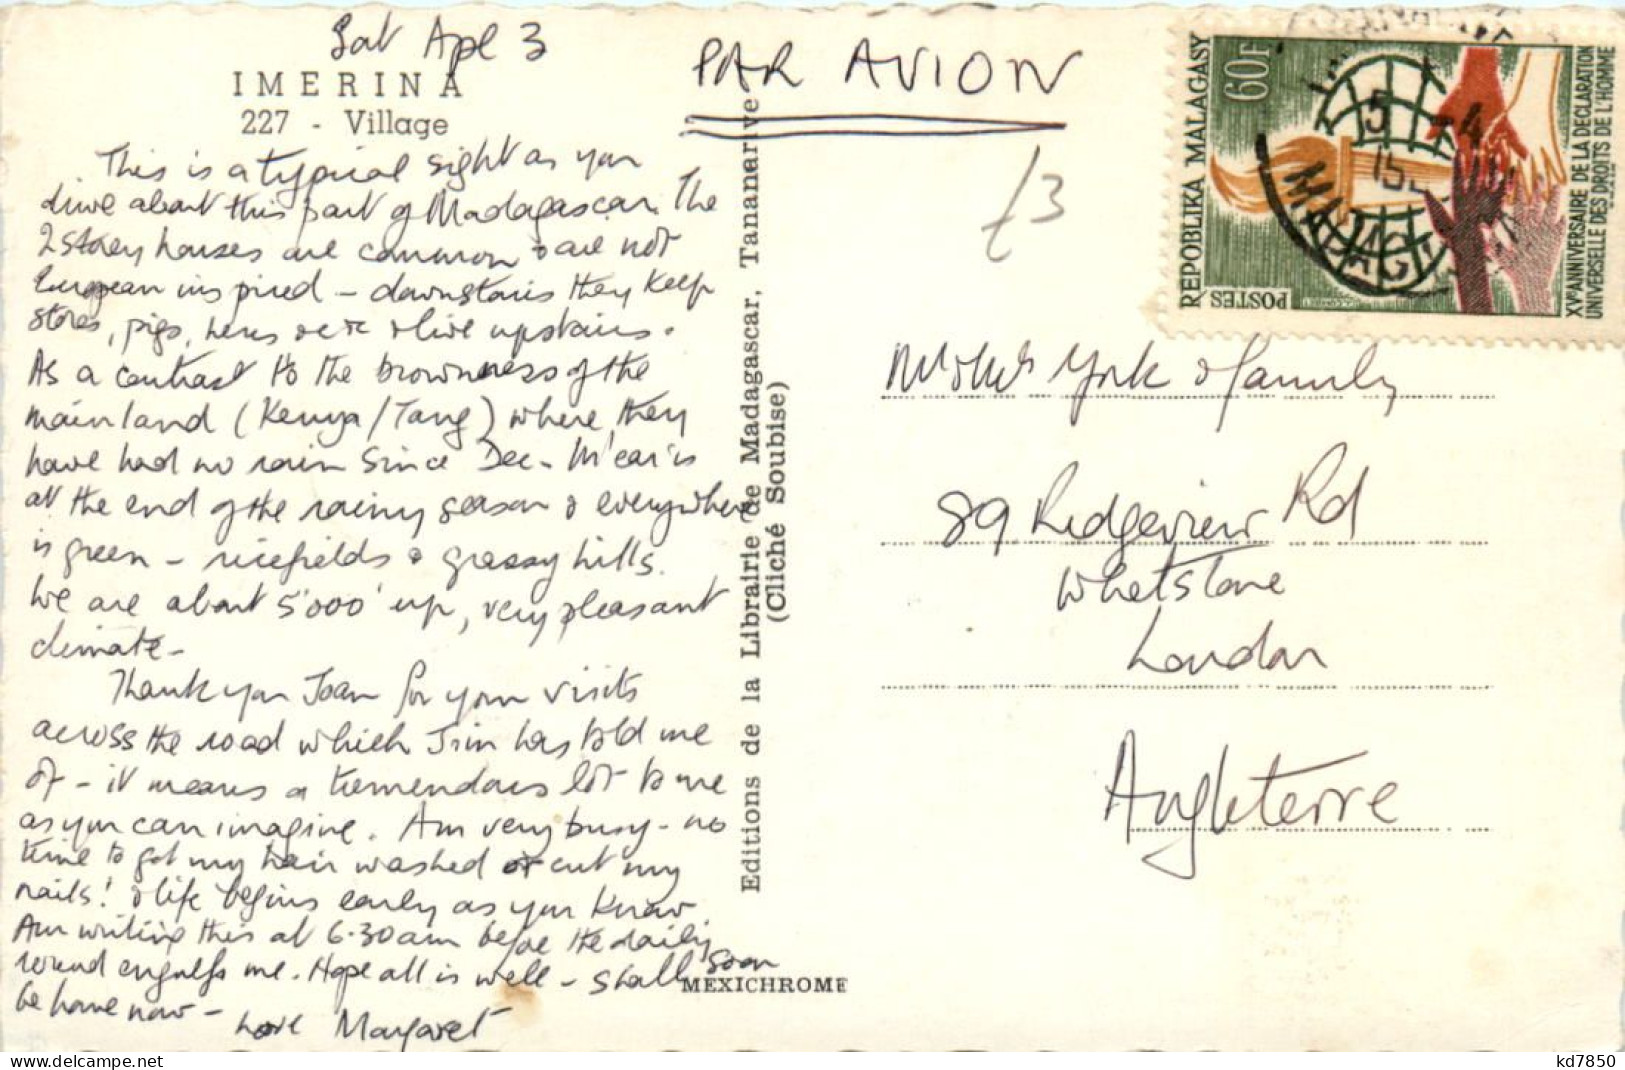 Sat Apl 3
IMERINA
227 - Village
This is a typical sight as you
drive about this part of Madagascar. The
2 storey houses are common & are not
European inspired - downstairs they keep
stores, pigs, hens etc & live upstairs.
As a contrast to the brownness of the
mainland (Kenya/Tang) where they
have had no rain since Dec - M'car is
at the end of the rainy season & everywhere
is green - ricefields & grassy hills.
We are about 5'000' up, very pleasant
climate -
Thank you Joan for your visits
across the road which Jim has told me
of - it means a tremendous lot to me
as you can imagine. Am very busy - no
time to get my hair washed or cut my
nails! & life begins early as you know.
Am writing this at 6.30am before the daily
round engulfs me. Hope all is well - shall soon
be home now -
Love Margaret
PAR AVION
£3
Editions de la Librairie de Madagascar, Tananarive
(Cliché Soubise)
MEXICHROME
REPOBLIKA MALAGASY
60F
POSTES
XVe ANNIVERSAIRE DE LA DECLARATION
UNIVERSELLE DES DROITS DE L'HOMME
Mr & Mrs York & family
89 Ridgeview Rd
Whetstone
London
Angleterre
https://www.delcampe.net
kd7850